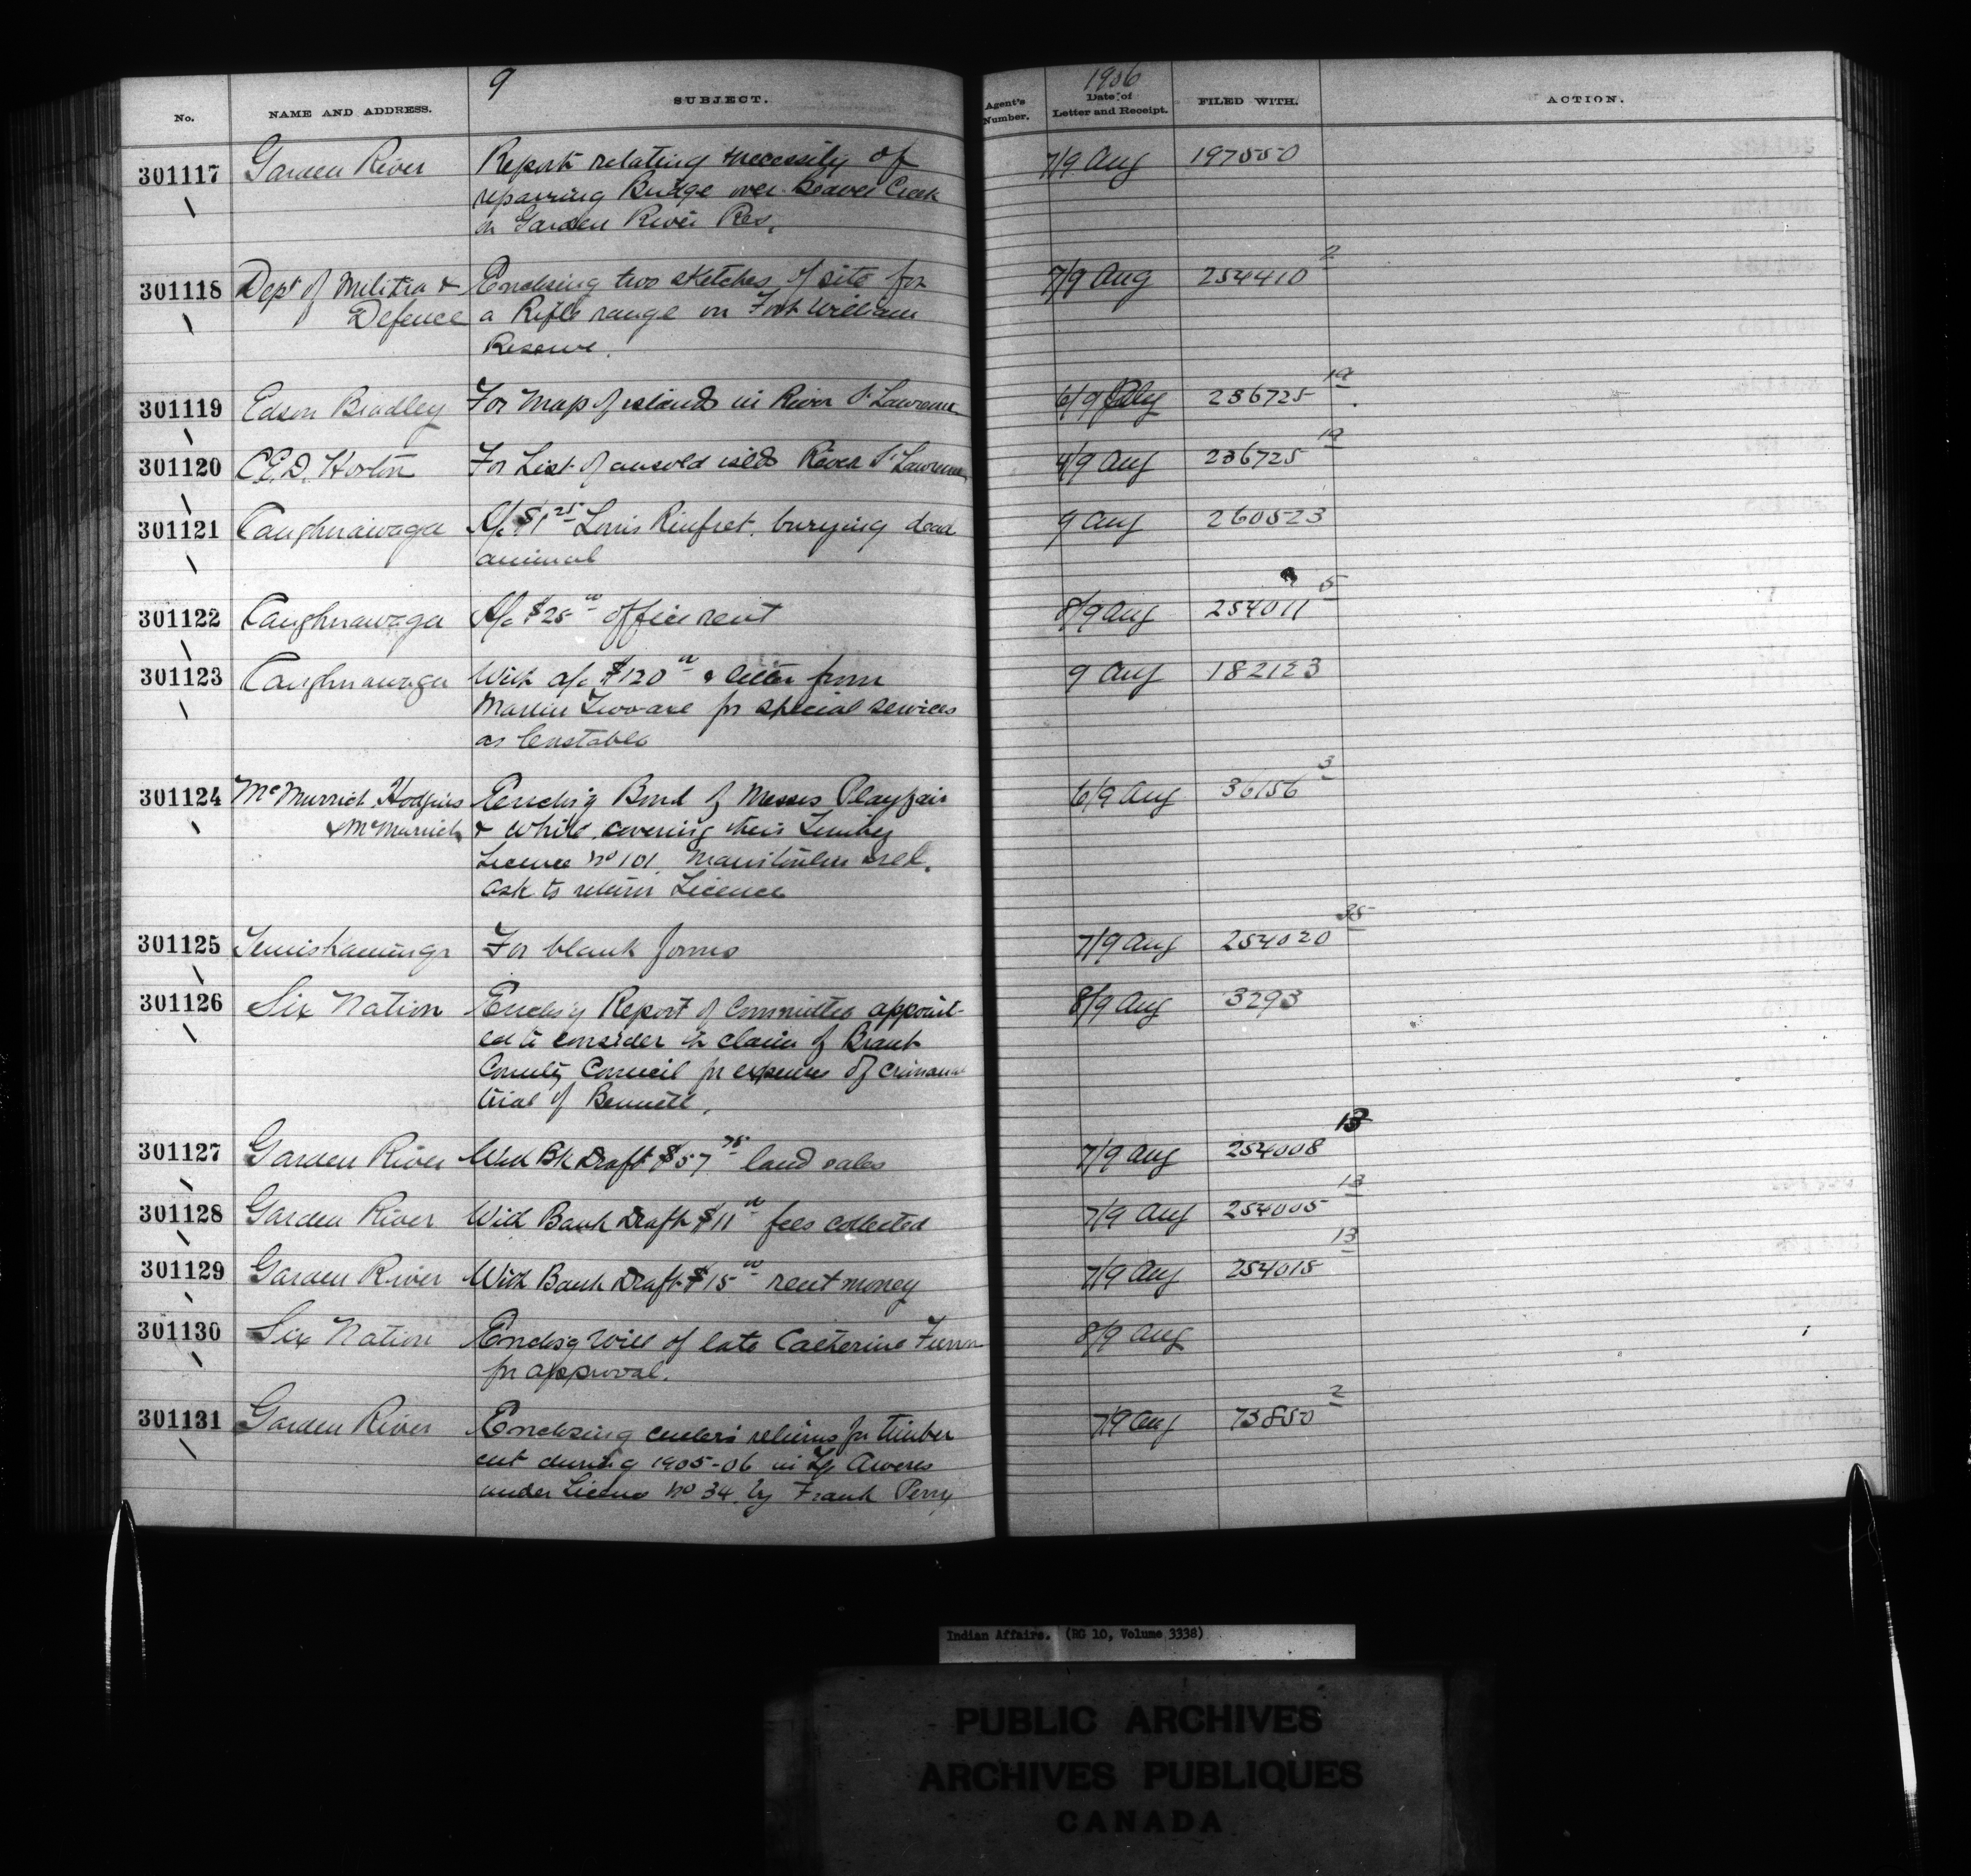 9
1906
No. NAME AND ADDRESS. SUBJECT. Agent's Number. Date of Letter and Receipt. FILED WITH. ACTION.
301117 Garden River Report relating necessity of 7/9 Aug 197550
repairing Bridge over Beaver Creek
in Garden River Res.
301118 Dept of Militia & Enclosing two sketches of site for 7/9 Aug 254410 2
Defence a Rifle range on Fort William
Reserve.
301119 Edson Bradley For Map of islands in River St Lawrence 6/9 236725 19
301120 C.E.D. Horton For List of unsold islds River St Lawrence 4/9 Aug 236725 19
301121 Caughnawaga A/c $1 25 Louis Rinfret burying dead 9 Aug 260523
animal
301122 Caughnawaga A/c $25 00 office rent 8/9 Aug 254011 5
301123 Caughnawaga With a/c $120 00 & letter from 9 Aug 182123
Martin Two-axe for special services
as Constable
301124 McMurrich Hodgins Enclosg Bond of Messrs Playfair 6/9 Aug 36156 3
& McMurrich & White covering their Timber
Licence No 101 Manitoulin Isld.
ask to return Licence
301125 Temiskamings For blank forms 7/9 Aug 254020 35
301126 Six Nation Enclosg Report of Committee appoint- 8/9 Aug 3293
ed to consider the claim of Brant
County Council for expenses of criminal
trial of Bennett.
301127 Garden River With Bk Draft $57 75 land sales 7/9 Aug 254008 13
301128 Garden River With Bank Draft $11 00 fees collected 7/9 Aug 254005 13
301129 Garden River With Bank Draft $15 00 rent money 7/9 Aug 254015 13
301130 Six Nation Enclosg Will of late Catherine 8/9 Aug
for approval.
301131 Garden River Enclosing cullers returns for timber 7/9 Aug 73850 2
cut during 1905-06 in Tp Aweres
under Licence No 34 by Frank Perry
Indian Affairs. (RG 10, Volume 3338)
PUBLIC ARCHIVES
ARCHIVES PUBLIQUES
CANADA